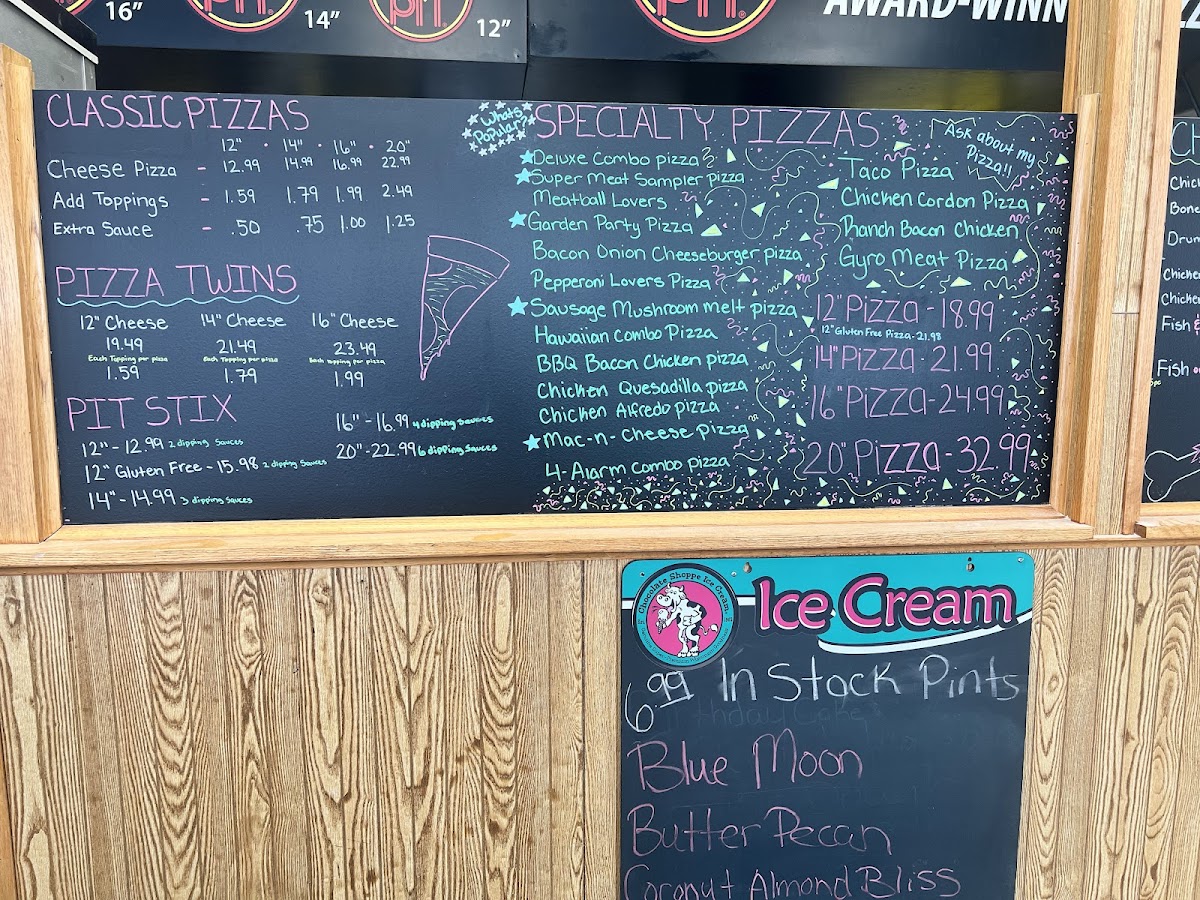 16"
14"
12"
PIT
PIT
PIT
AWARD-WINN
CLASSIC PIZZAS
12" · 14" · 16" · 20"
Cheese Pizza - 12.99 14.99 16.99 22.99
Add Toppings - 1.59 1.79 1.99 2.49
Extra Sauce - .50 .75 1.00 1.25
PIZZA TWINS
12" Cheese 14" Cheese 16" Cheese
19.49 21.49 23.49
Each Topping per pizza Each Topping per pizza Each topping per pizza
1.59 1.79 1.99
PIT STIX
12" - 12.99 2 dipping Sauces
12" Gluten Free - 15.98 2 dipping Sauces
14" - 14.99 3 dipping sauces
16" - 16.99 4 dipping sauces
20" - 22.99 6 dipping sauces
Whats Popular?
SPECIALTY PIZZAS
Deluxe Combo pizza
Super Meat Sampler pizza
Meatball Lovers
Garden Party Pizza
Bacon Onion Cheeseburger pizza
Pepperoni Lovers Pizza
Sausage Mushroom melt pizza
Hawaiian combo Pizza
BBQ Bacon Chicken pizza
Chicken Quesadilla pizza
Chicken Alfredo pizza
Mac-n-Cheese pizza
4-Alarm Combo pizza
Ask about my
Pizza!!
Taco Pizza
Chicken Cordon Pizza
Ranch Bacon Chicken
Gyro Meat Pizza
12" Pizza - 18.99
12" Gluten Free Pizza - 21.98
14" Pizza - 21.99
16" Pizza - 24.99
20" Pizza - 32.99
Ch
Chick
Bone
Drum
Chicke
Chicke
Fish &
Fish
Chocolate Shoppe Ice Cream
Ice Cream
6.99 In Stock Pints
Blue Moon
Butter Pecan
Coconut Almond Bliss